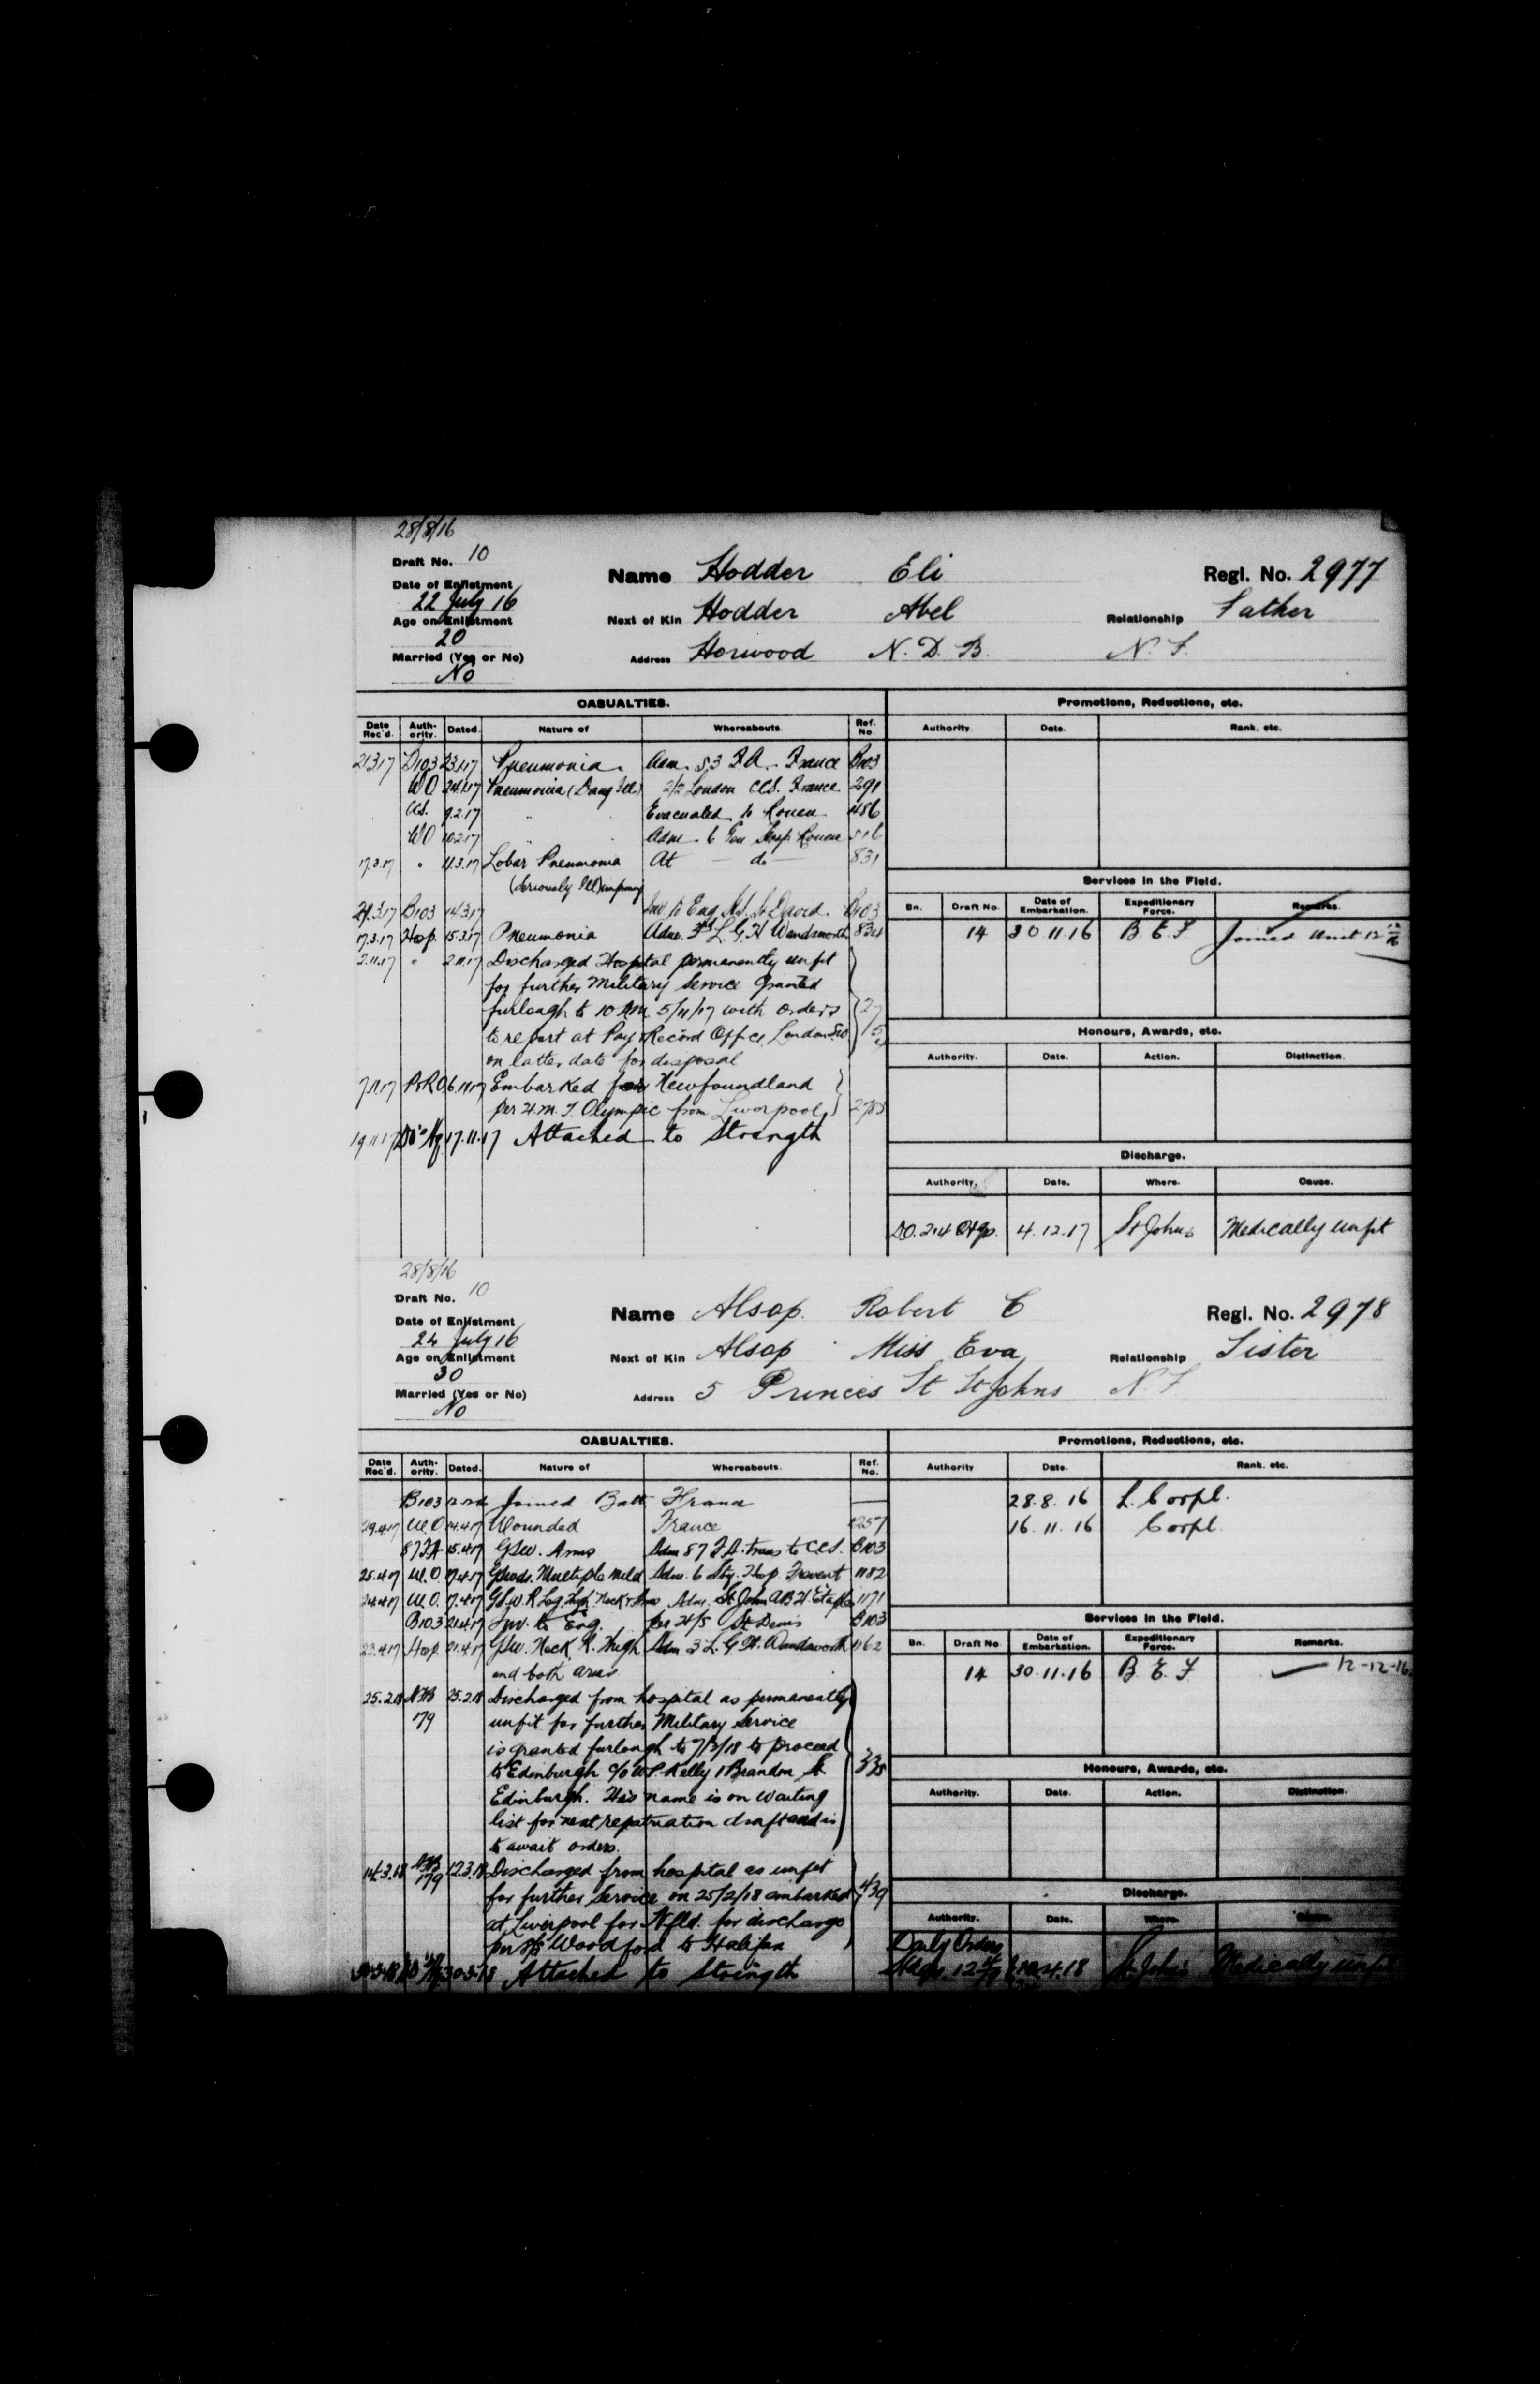 28/8/16
Draft No. 10
Date of Enlistment
22 July 16
Age on Enlistment
20
Married (Yes or No)
No
Name Hodder Eli Regl. No. 2977
Next of Kin Hodder Abel Relationship Father
Address Horwood N. D. B. N. F.
CASUALTIES. Promotions, Reductions, etc.
Date Rec'd. Auth-ority. Dated. Nature of Whereabouts. Ref. No. Authority. Date. Rank. etc.
21.3.17 B103 23.1.17 Pneumonia. Adm. 53 F.A. France B103
WO 24.1.17 Pneumonia (Dang Ill) 2/2 London CCS. France 291
9.2.17 " Evacuated to Rouen 486
WO 10.2.17 " Adm. 6 Gen Hosp Rouen 516
17.3.17 " 11.3.17 Lobar Pneumonia At — do — 831
(Seriously Ill)
B103 14.3.17 Inv to Eng. H.S. St David. B103
17.3.17 Hop. 15.3.17 Pneumonia Adm. 3rd L. G. H Wandsworth 834
2.11.17 " 2.11.17 Discharged Hospital permanently unfit
for further Military Service Granted
furlough to 10 AM 5/11/17 with orders
to report at Pay & Record Office London SW
on latter date for disposal
7.11.17 P&RO 6.11.17 Embarked for Newfoundland
per H.M.T. Olympic from Liverpool
19.11.17 17.11.17 Attached to Strength
Services in the Field.
Bn. Draft No. Date of Embarkation. Expeditionary Force. Remarks.
14 30.11.16 B. E. F Joined Unit 12
Honours, Awards, etc.
Authority. Date. Action. Distinction.
Discharge.
Authority. Date. Where. Cause.
4.12.17 St Johns Medically unfit
28/8/16
Draft No. 10
Date of Enlistment
24 July 16
Age on Enlistment
30
Married (Yes or No)
No
Name Alsop. Robert C Regl. No. 2978
Next of Kin Alsop Miss Eva Relationship Sister
Address 5 Princes St St Johns N. F
CASUALTIES. Promotions, Reductions, etc.
Date Rec'd. Auth-ority. Dated. Nature of Whereabouts. Ref. No. Authority Date. Rank. etc.
B103 Joined Batt France
29.4.17 W.O. 14.4.17 Wounded France 1257
87 FA 15.4.17 GSW. Arms Adm 87 F.A. trans to CCS. B103
25.4.17 W.O. 17.4.17 Multiple mild Adm. 6 Sty. Hop. Frevent 1182
24.4.17 W.O. 17.4.17 GSW. R Leg. Thgh. Neck & Arms Adm. St John AB H. Etaples 1171
B103 21.4.17 Inv. to Eng. per H/S St Denis B103
23.4.17 Hop. 21.4.17 GSW. Neck, R. Thigh Adm 3 L. G. H. Wandsworth 1162
and both arms
25.2.18 179 25.2.18 Discharged from hospital as permanently
unfit for further Military Service
is granted furlough to 7/3/18 to proceed
to Edinburgh c/o W.P. Kelly 1 Brandon St.
Edinburgh. His name is on waiting
list for next repatriation draft and is
to await orders.
14.3.18 179 12.3.18 Discharged from hospital as unfit
for further Service on 25/2/18 embarked 439
at Liverpool for Nfld. for discharge
per S/S Woodford to Halifax
30.3.18 30.3.18 Attached to Strength
28.8.16 L. Corpl.
16.11.16 Corpl.
Services in the Field.
Bn. Draft No Date of Embarkation. Expeditionary Force. Remarks.
14 30.11.16 B. E. F 12-12-16
Honours, Awards, etc.
Authority. Date. Action. Distinction.
Discharge.
Authority. Date. Where. Cause.
Daily Orders
4.18 St. John's Medically unfit